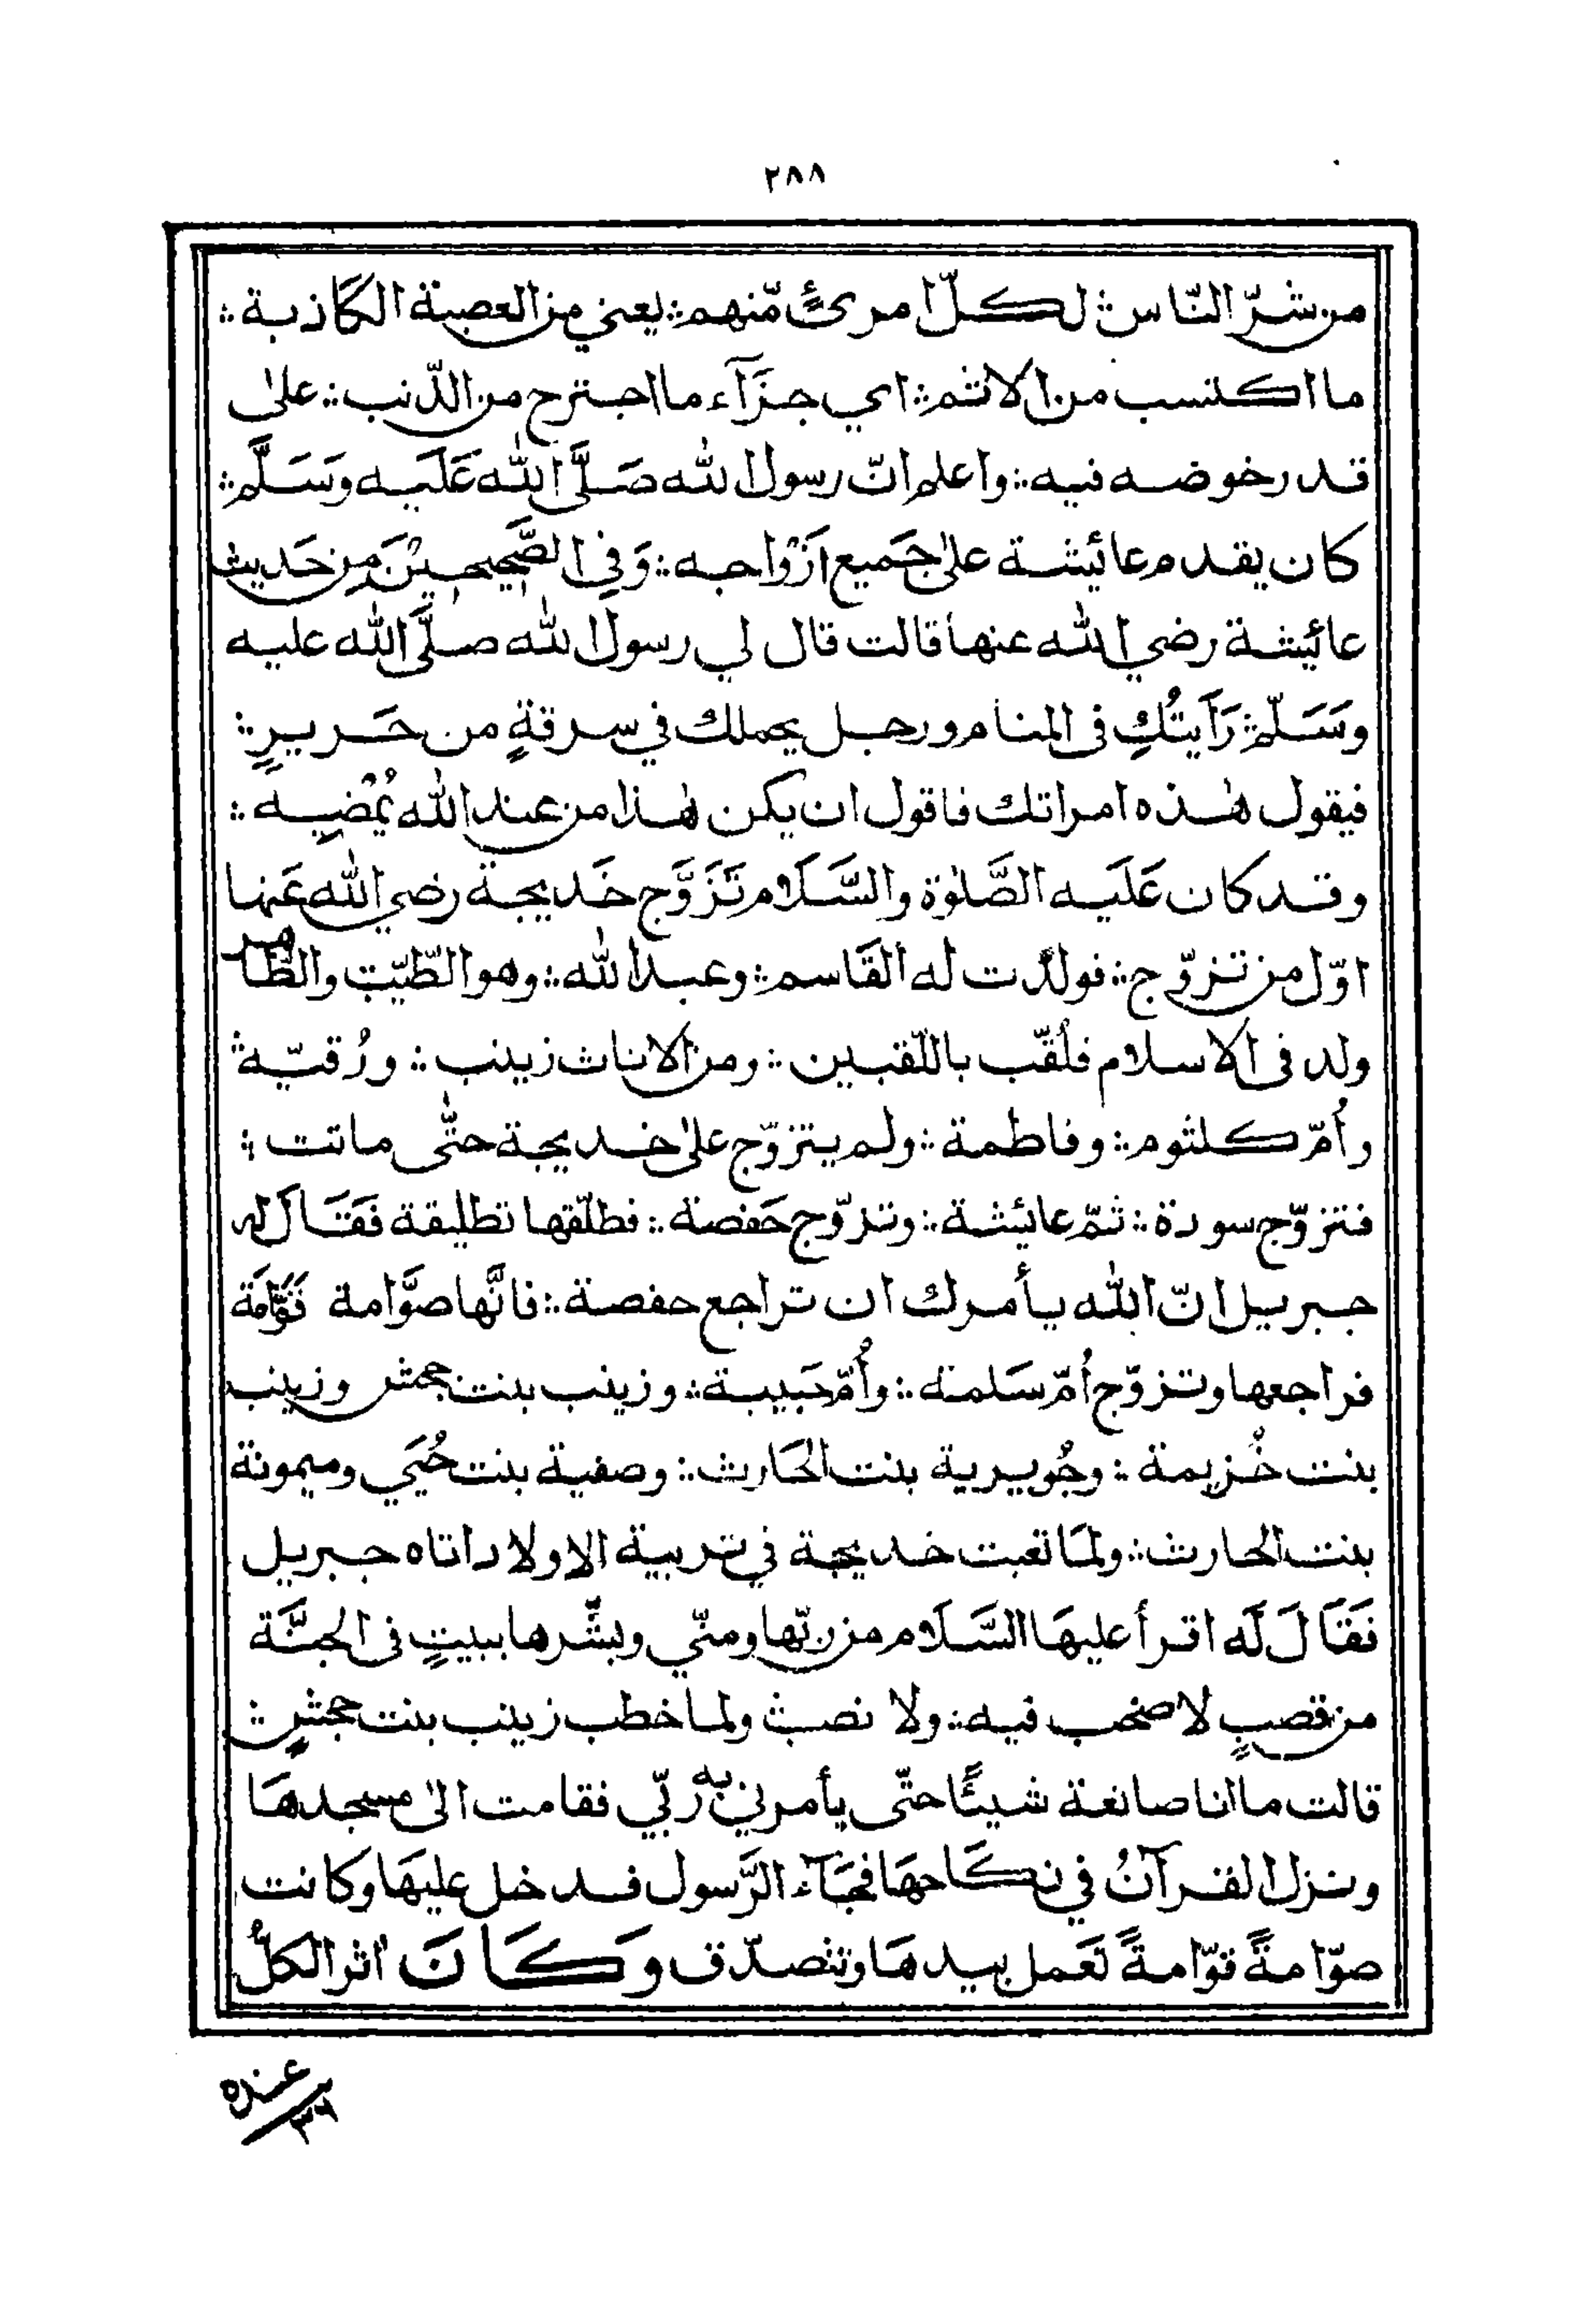 ٢٨٨
من شرّ النّاس ∴ لكلّ امرئٍ مّنهم ∴ يعني من العصبة الكاذبة ∴
ما اكتسب من الاثم ∴ اي جزآء ما اجترح من الذّنب ∴ على
قدر خوضه فيه ∴ واعلم انّ رسول الله صَلَّى الله عَلَيه وَسَلَّم ∴
كان يقدم عائيشة على جَميع اَزْواجه ∴ وَفي الصَّحيحيْنَ مِن حَديث
عائيشة رضي الله عنها قالت قال لي رسول الله صلَّى الله عليه
وَسَلّم ∴ رَاَيتُكِ فى المنام ورجل يحملك في سرقةٍ من حَريرٍ ∴
فيقول هٰذه امراتك فاقول ان يكن هٰذا من عند الله يُمْضيه ∴
وقد كان عَلَيه الصَّلوٰة والسَّلَام تَزَوَّج خَديجة رضي الله عَنها
اوّل من تزوّج ∴ فولدت له القَاسم ∴ وعبد الله ∴ وهو الطّيّب والطّاهر
ولد فى الاسلام فلُقّب باللّقبين ∴ ومن الاناث زينب ∴ ورُقيّة ∴
وأُمّ كلثوم ∴ وفاطمة ∴ ولم يتزوّج على خديجة حتّٰى ماتت ∴
فتزوّج سودة ∴ ثمّ عائيشة ∴ وتزوّج حَفصة ∴ فطلّقها تطليقة فَقَال له
جبريل انّ الله يأمرك ان تراجع حفصة ∴ فانَّها صوَّامة قَوَّامَة
فراجعها وتزوّج أُمّ سَلمة ∴ وأُمّ حَبيبة ∴ وزينب بنت جحش وزينب
بنت خُزيمة ∴ وجُويرية بنت الحَارث ∴ وصفية بنت حُيَي وميمونة
بنت الحارث ∴ ولمَا تعبت خديجة في تربية الاولاد اتاه جبريل
فَقَالَ لَه اقرأ عليهَا السَّلَام من ربّها ومنّي وبشّرها ببيتٍ فى الجنَّة
من قصبٍ لا صخب فيه ∴ ولا نصب ∴ ولما خطب زينب بنت جحشٍ ∴
قالت ما انا صانعة شيئًا حتّى يأمرني به ربّي فقامت الىٰ مسجدهَا
ونزل القرآنُ في نكَاحهَا فجَآء الرَّسول فدخل عليهَا وكانت
صوّامةً قوّامةً تَعمل بيدهَا وتتصدّق وَكَانَ اثر الكلُّ
عنده
٣٦